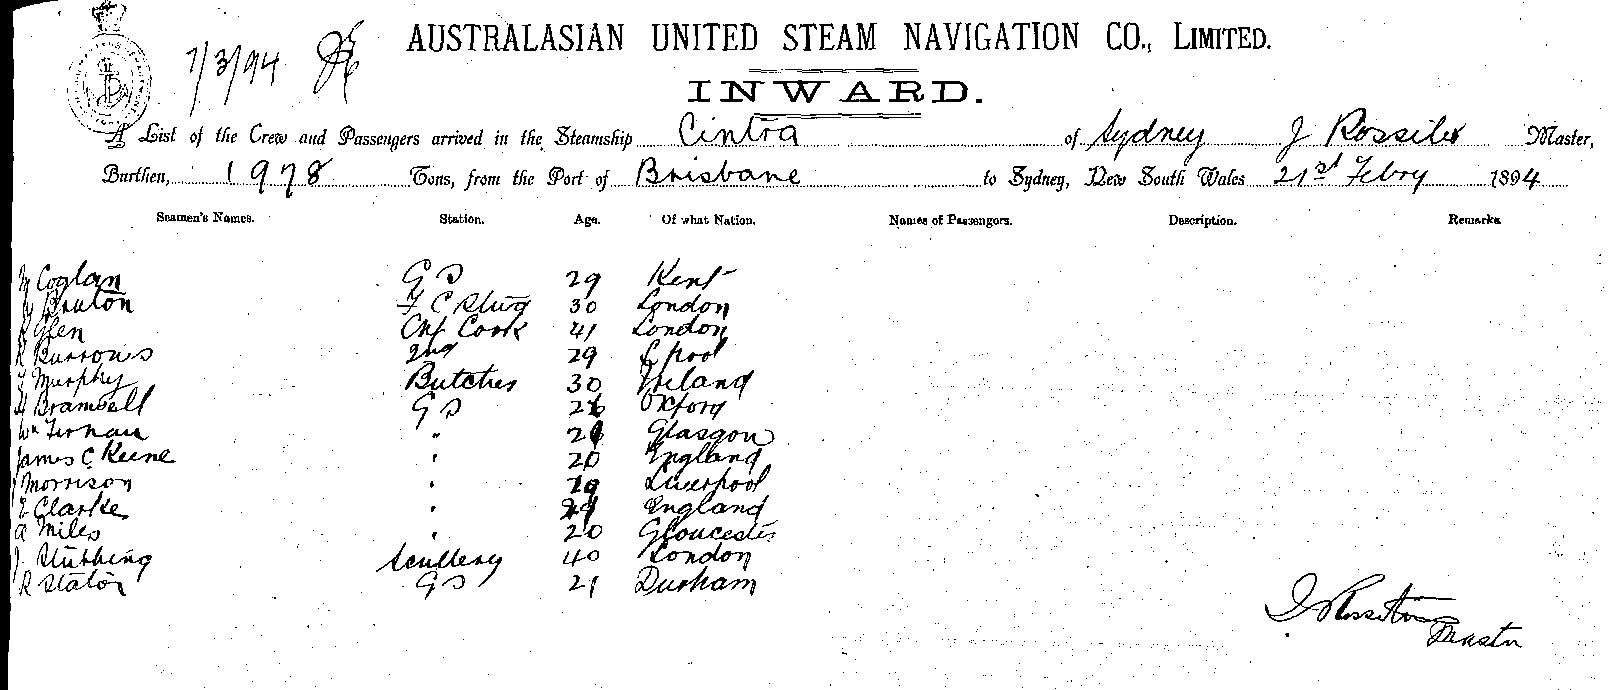 7/3/94
AUSTRALASIAN UNITED STEAM NAVIGATION CO., LIMITED.
INWARD.
A List of the Crew and Passengers arrived in the Steamship Cintra of Sydney J Rossiter Master,
Burthen, 1978 Tons, from the Port of Brisbane to Sydney, New South Wales 21st Febry 1894
Seamen's Names. Station. Age. Of what Nation. Names of Passengers. Description. Remarks
Coglan G S 29 Kent
Bruton F C Stwg 30 London
Glen Chf Cook 41 London
R Burrows 2nd 29 L pool
Murphy Butcher 30 Ireland
H Bramwell G S Oxford
Wm Tirnan " Glasgow
James C Keene " 20 England
J Morrison " 19 Liverpool
E Clarke " England
A Miles " 20 Gloucester
J. Stubbing Scullery 40 London
R Stator G S 21 Durham
J Rossiter
Master